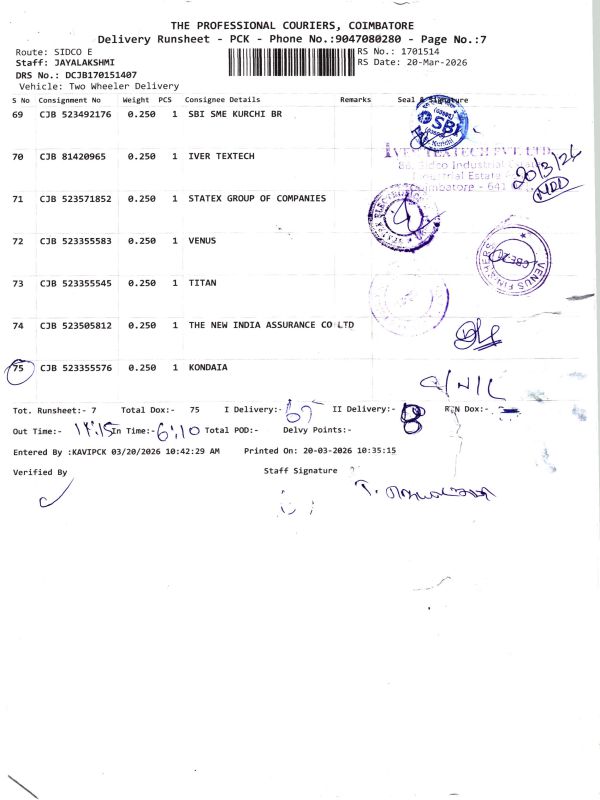 THE PROFESSIONAL COURIERS, COIMBATORE
Delivery Runsheet - PCK - Phone No.:9047080280 - Page No.:7
Route: SIDCO E
RS No.: 1701514
Staff: JAYALAKSHMI
RS Date: 20-Mar-2026
DRS No.: DCJB170151407
Vehicle: Two Wheeler Delivery
S No Consignment No Weight PCS Consignee Details Remarks Seal & Signature
69 CJB 523492176 0.250 1 SBI SME KURCHI BR
SBI
70 CJB 81420965 0.250 1 IVER TEXTECH
IVER TEXTECH PVT. LTD.
88, Sidco Industrial Estate
Industrial Estate
Coimbatore - 641
20/3/26
71 CJB 523571852 0.250 1 STATEX GROUP OF COMPANIES
72 CJB 523355583 0.250 1 VENUS
VENUS FINASHERS
CBE-21
73 CJB 523355545 0.250 1 TITAN
74 CJB 523505812 0.250 1 THE NEW INDIA ASSURANCE CO LTD
75 CJB 523355576 0.250 1 KONDAIA
Tot. Runsheet:- 7 Total Dox:- 75 I Delivery:- 67 II Delivery:- 8 RTN Dox:-
Out Time:- 11:15 In Time:- 6:10 Total POD:- Delvy Points:-
Entered By :KAVIPCK 03/20/2026 10:42:29 AM Printed On: 20-03-2026 10:35:15
Verified By Staff Signature